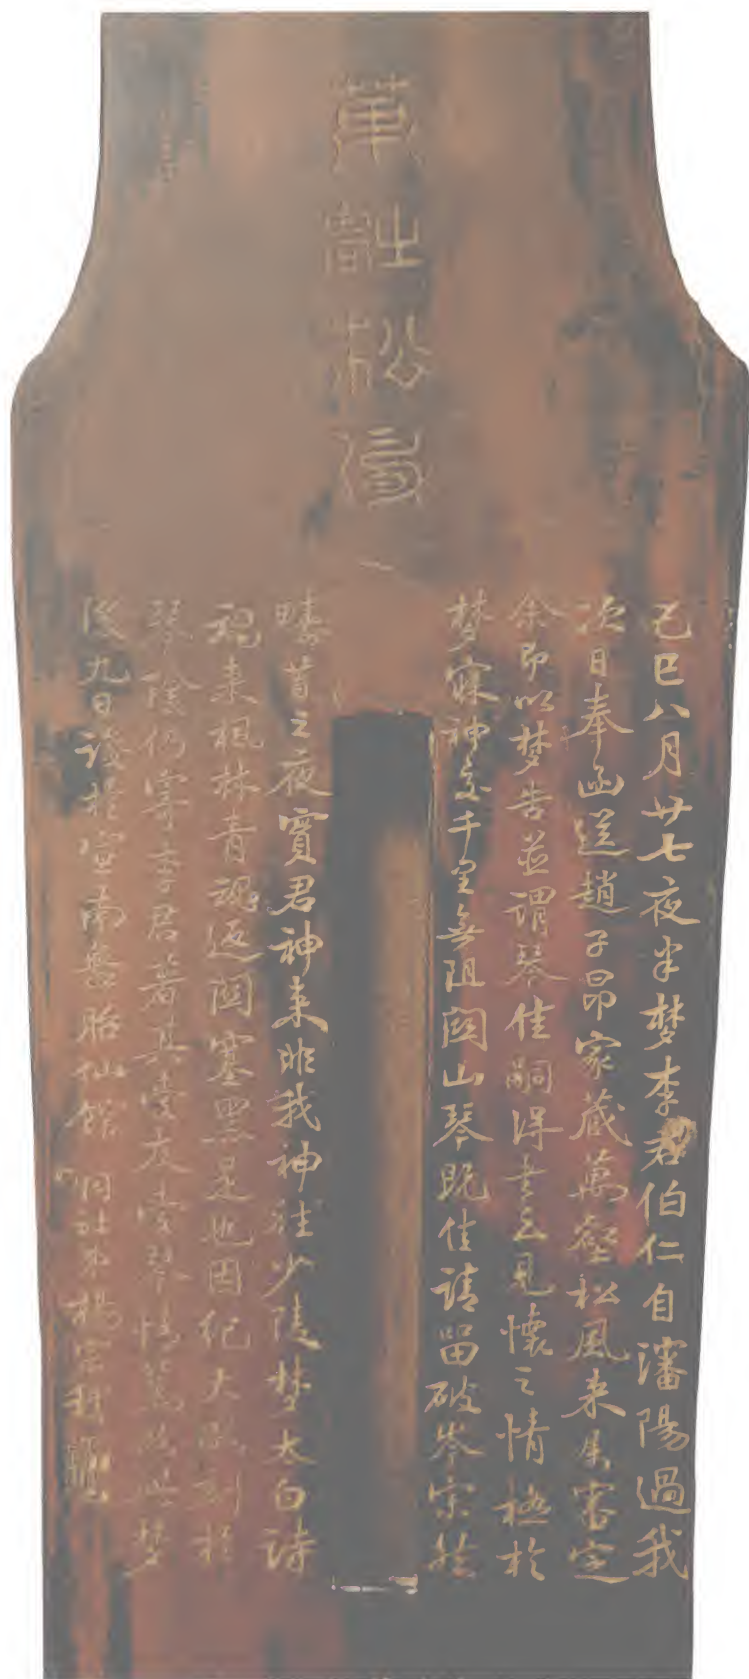 萬壑松風
己巳八月廿七夜半梦李君伯仁自瀋陽過我
次日奉函送趙子昂家藏萬壑松風来属審定
余即以梦告並謂琴佳嗣得書云見懷之情極於
梦寐神交千里無阻関山琴既佳請留破岑宗於
疇昔之夜實君神来非我神往少陵梦太白詩
魂来楓林青魂返関塞黑是也因紀大略刻於
琴陰仍寄李君著其愛友愛琴情篤如此梦
後九日識於宣南舞胎仙館 同社弟楊宗稷